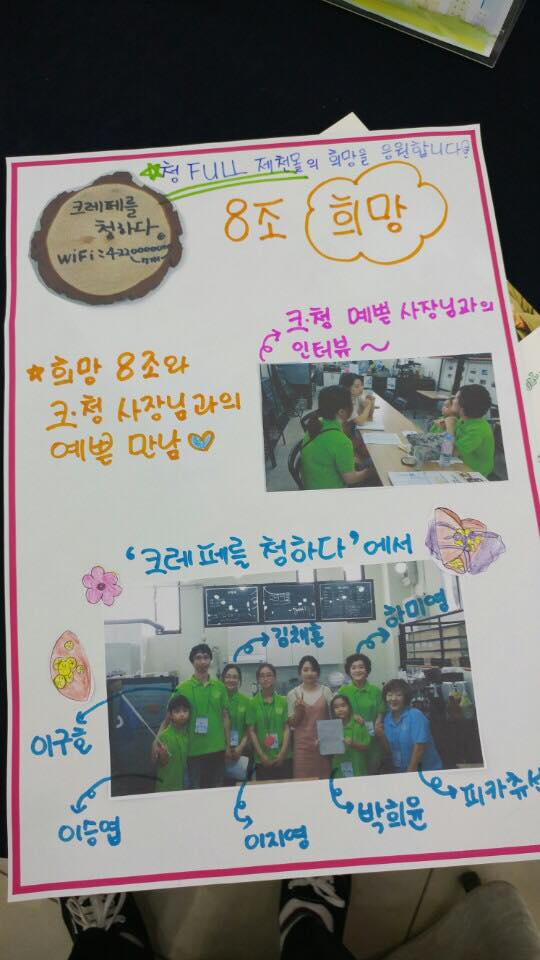 청 FULL 제천몰의 희망을 응원합니다
크레페를
청하다.
WiFi:
8조 희망
크.청 예쁜 사장님과의
인터뷰~
희망 8조와
크.청 사장님과의
예쁜 만남
'크레페를 청하다'에서
김채흔
하미영
이구흔
이승엽
이지영
박희윤
피카츄